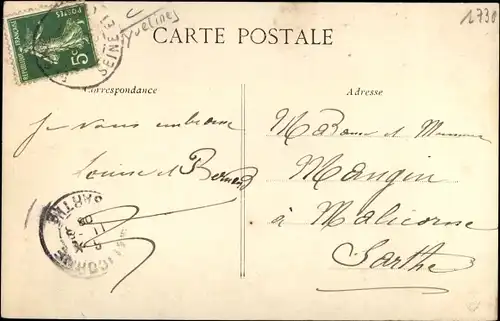 1730
Yvelines
CARTE POSTALE
POSTES
5c
REPUBLIQUE FRANÇAISE
SEINE ET
Correspondance
Adresse
Je vous embrasse
Louise et Bernard
Madame et Monsieur
Mangin
à Malicorne
Sarthe
SARTHE
MALICORNE